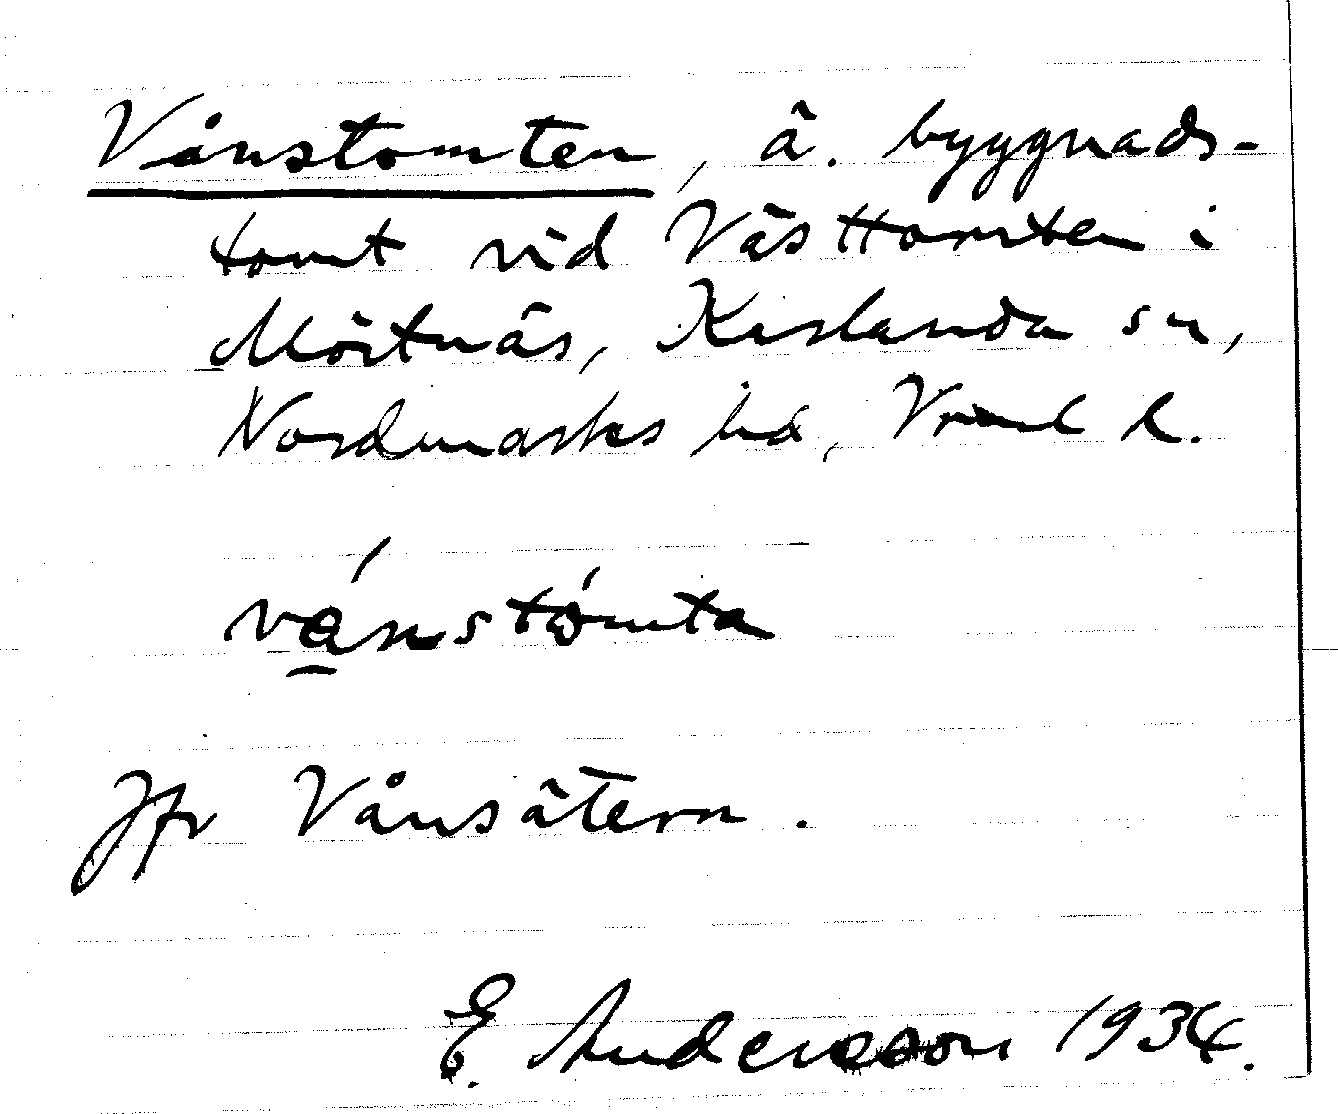 Vånstomten, ä. byggnads-
tomt vid Västtomten i
Mörtnäs, Karlanda sn,
Nordmarks hd, Vrml l.
vånstómta
Jfr Vånsätern.
E. Andersson 1934.